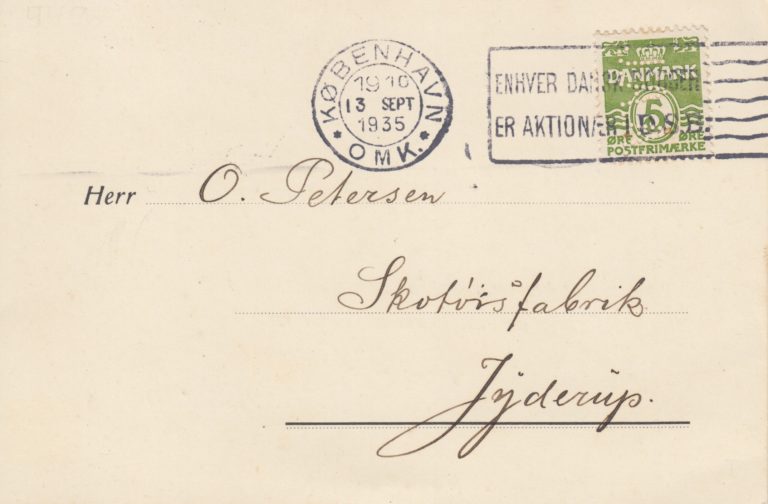 KØBENHAVN
13 SEPT
1935
* OMK. *
ENHVER DANSK
ER AKTIONÆR I D.S.B.
DANMARK
5
ØRE ØRE
POSTFRIMÆRKE
Herr O. Petersen
Skotöisfabrik
Jyderup.